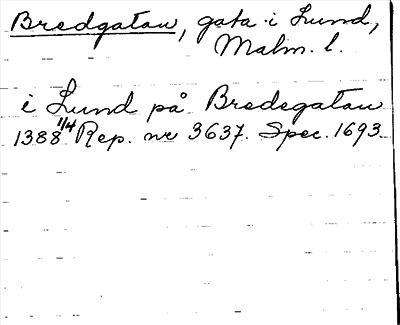 Bredgatan, gata i Lund,
Malm. l.
i Lund på Bredegatan
1388 1/4 Rep. nr 3637. Spec. 1693.